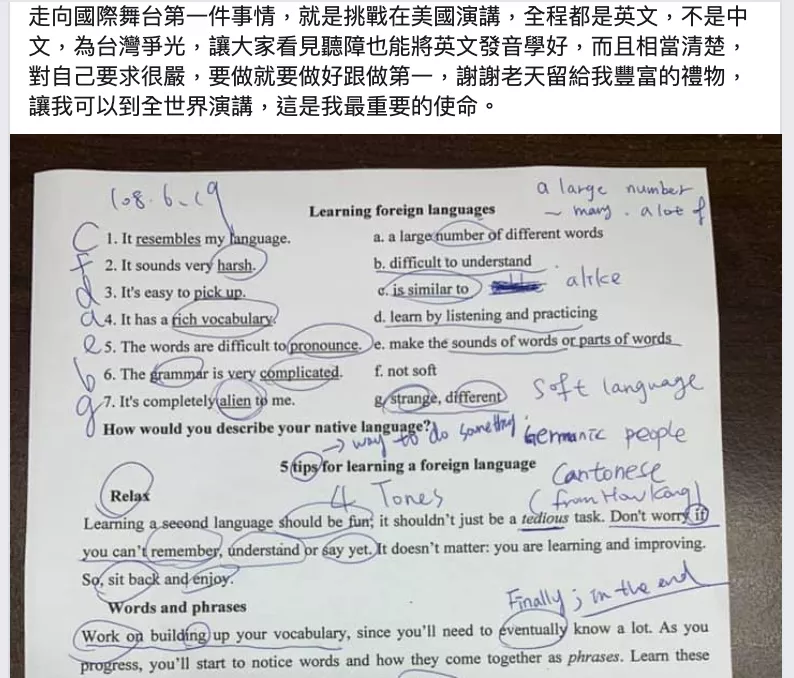 走向國際舞台第一件事情，就是挑戰在美國演講，全程都是英文，不是中
文，為台灣爭光，讓大家看見聽障也能將英文發音學好，而且相當清楚，
對自己要求很嚴，要做就要做好跟做第一，謝謝老天留給我豐富的禮物，
讓我可以到全世界演講，這是我最重要的使命。
108.6.19
a large number
~ many. a lot of
Learning foreign languages
C 1. It resembles my language. a. a large number of different words
f 2. It sounds very harsh. b. difficult to understand
d 3. It's easy to pick up. c. is similar to alike
a 4. It has a rich vocabulary. d. learn by listening and practicing
e 5. The words are difficult to pronounce. e. make the sounds of words or parts of words
b 6. The grammar is very complicated. f. not soft
g 7. It's completely alien to me. g. strange, different
soft language
How would you describe your native language?
→ way to do something
Germanic people
5 tips for learning a foreign language
Cantonese
(from Hon Kong)
Relax
4 Tones
Learning a second language should be fun; it shouldn't just be a tedious task. Don't worry if
you can't remember, understand or say yet. It doesn't matter: you are learning and improving.
So, sit back and enjoy.
Finally ; in the end
Words and phrases
Work on building up your vocabulary, since you'll need to eventually know a lot. As you
progress, you'll start to notice words and how they come together as phrases. Learn these